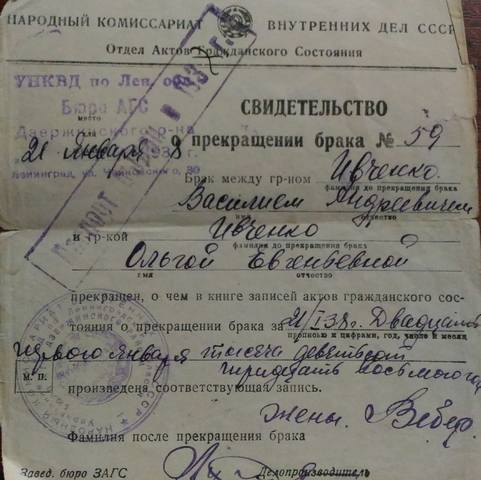 НАРОДНЫЙ КОМИССАРИАТ ВНУТРЕННИХ ДЕЛ СССР
Отдел Актов Гражданского Состояния
УНКВД по Лен. обл.
Бюро АГС
место
Дзержинского р-на
21 января 1938 г.
Ленинград, ул. Чайковского, 30
СВИДЕТЕЛЬСТВО
о прекращении брака № 59
Брак между гр-ном Ивченко
фамилия до прекращения брака
Василием Андреевичем
имя отчество
и гр-кой Ивченко
фамилия до прекращения брака
Ольгой Евгеньевной
имя отчество
прекращен, о чем в книге записей актов гражданского сос-
тояния о прекращении брака за 21/I 38 г. Двадцать
прописью и цифрами, год, число и месяц
первого января тысяча девятьсот
тридцать восьмого года
М. П.
произведена соответствующая запись.
жены. Вебер.
Фамилия после прекращения брака
Завед. бюро ЗАГС Делопроизводитель